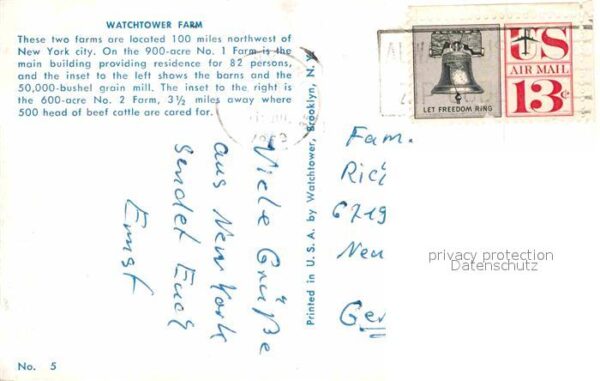 WATCHTOWER FARM
These two farms are located 100 miles northwest of
New York city. On the 900-acre No. 1 Farm is the
main building providing residence for 82 persons,
and the inset to the left shows the barns and the
50,000-bushel grain mill. The inset to the right is
the 600-acre No. 2 Farm, 3½ miles away where
500 head of beef cattle are cared for.
Viele Grüße
aus New York
sendet Euch
Ernst
No. 5
Printed in U.S.A. by Watchtower, Brooklyn, N. Y.
LET FREEDOM RING
US
AIR MAIL
13c
Fam.
6719
Neu
Ger
privacy protection
Datenschutz